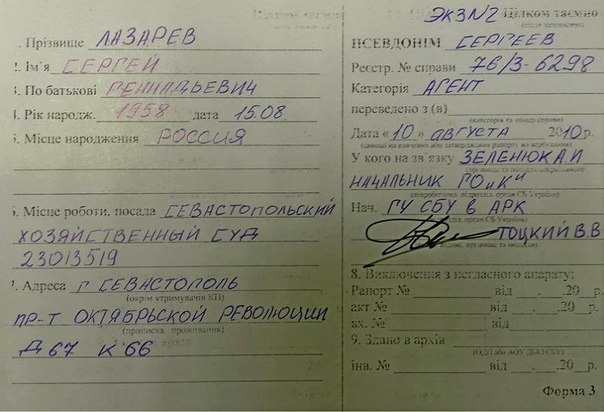 1. Прізвище ЛАЗАРЕВ
2. Ім'я СЕРГЕЙ
3. По батькові ГЕННАДЬЕВИЧ
4. Рік народж. 1958 дата 15.08.
5. Місце народження РОССИЯ
6. Місце роботи, посада СЕВАСТОПОЛЬСКИЙ
ХОЗЯЙСТВЕННЫЙ СУД
23013519
7. Адреса г СЕВАСТОПОЛЬ
(окрім утримувачів КП)
ПР-Т ОКТЯБРЬСКОЙ РЕВОЛЮЦИИ
(прописка, проживання)
Д 67 К 66
ЭКЗ N2 Цілком таємно
ПСЕВДОНІМ СЕРГЕЕВ
Реєстр. № справи 76/3-6298
Категорія АГЕНТ
переведено з (в)
Дата «10» АВГУСТА 2010р.
У кого на зв'язку ЗЕЛЕНЮК А И
НАЧАЛЬНИК ГО "К"
Нач. ГУ СБУ В АРК
ТОЦКИЙ В.В
8. Виключення з негласного апарату:
Рапорт № від . .20 р.
акт № від . .20 р.
вх. № від . .20 р.
9. Здано в архів
(ОДП або АОУ ДІАТ СБУ)
інв. № від . .20 р.
Форма 3